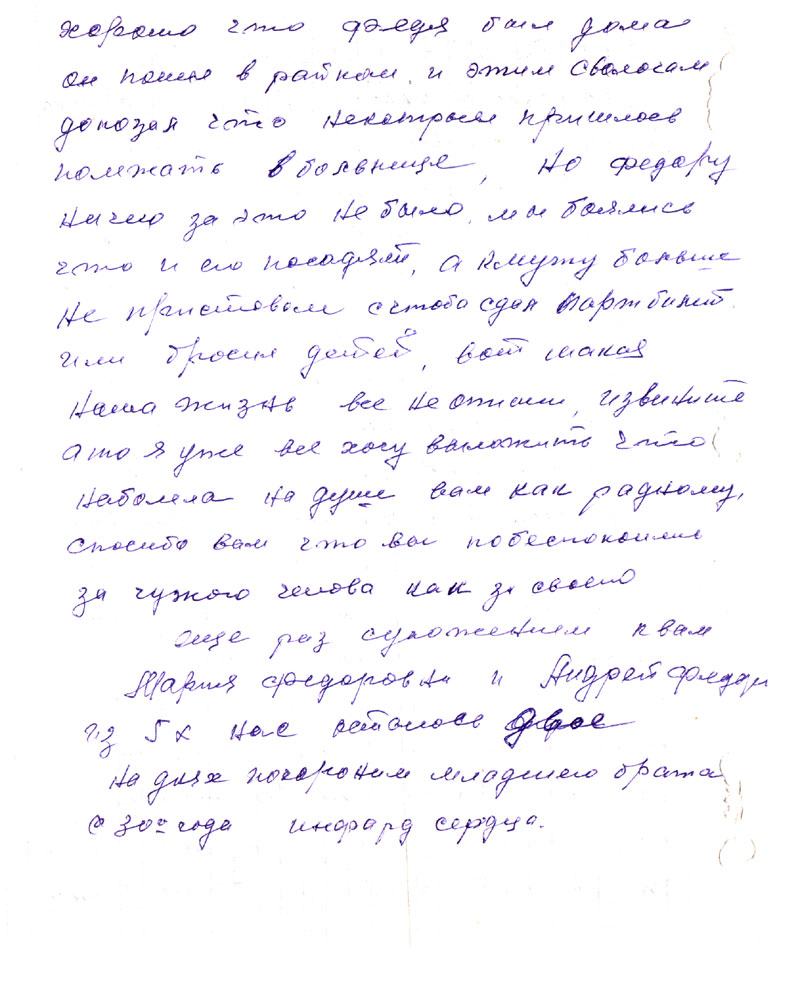 хорошо что Федя был дома
он пошел в райком, и этим сволочам
доказал что некотрым пришлось
полежать в больнице, но Федору
ничего за это не было, мы боялись
что и его посадят, а к мужу больше
не приставали с чтоба сдал партбилет
или бросил детей, вот такая
наша жизнь все не опиши, извините
а то я уже все хочу выложить что
наболела на душе вам как радному,
спосибо вам что вы побеспокоились
за чужого человa как за своего
еще раз суважением к вам
Мария Федоровна и Андрей Федор
из 5х нас осталось двое
на днях похоронили младшего брата
с 30го года инфард сердца.